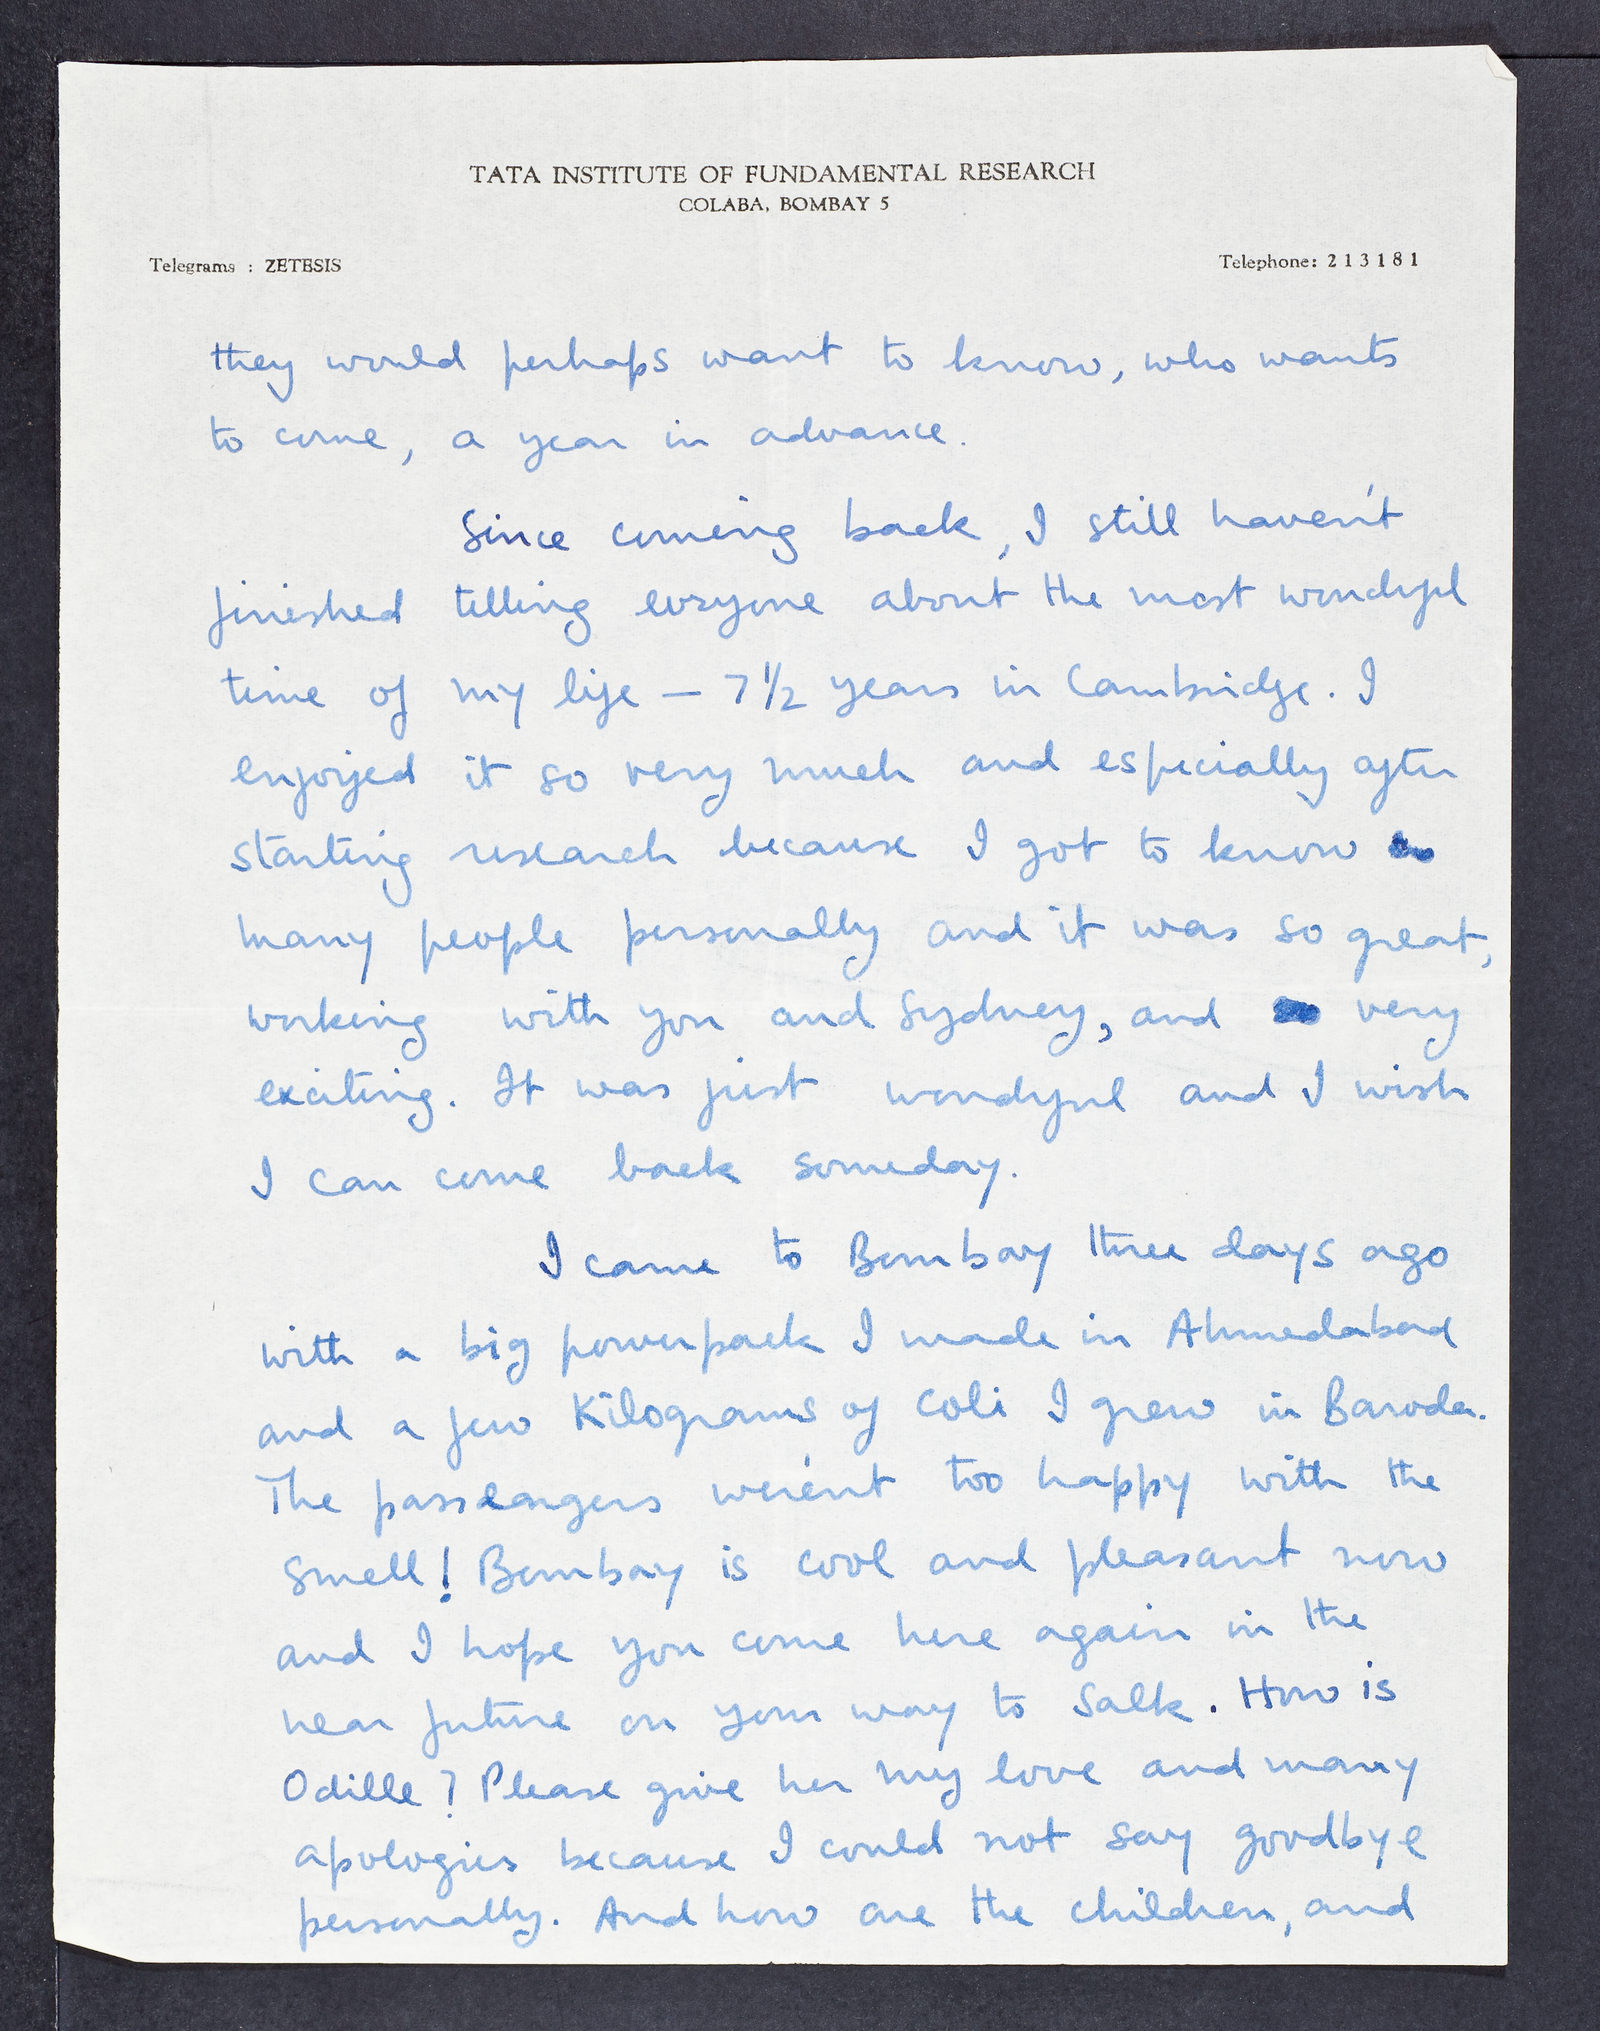 TATA INSTITUTE OF FUNDAMENTAL RESEARCH
COLABA, BOMBAY 5
Telegrams : ZETESIS
Telephone: 2 1 3 1 8 1
they would perhaps want to know, who wants
to come, a year in advance.
Since coming back, I still haven't
finished telling everyone about the most wonderful
time of my life — 7 1/2 years in Cambridge. I
enjoyed it so very much and especially after
starting research because I got to know
many people personally and it was so great,
working with you and Sydney, and very
exciting. It was just wonderful and I wish
I can come back someday.
I came to Bombay three days ago
with a big powerpack I made in Ahmedabad
and a few Kilograms of coli I grew in Baroda.
The passengers weren't too happy with the
smell! Bombay is cool and pleasant now
and I hope you come here again in the
near future on your way to Salk. How is
Odille? Please give her my love and many
apologies because I could not say goodbye
personally. And how are the children, and